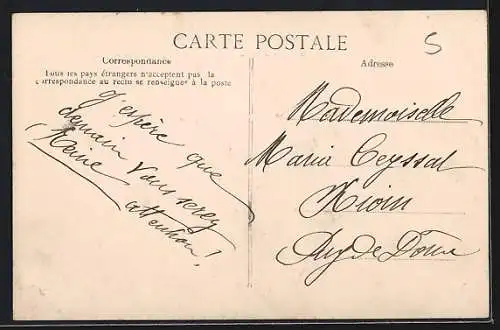 CARTE POSTALE
5
Correspondance
Tous les pays étrangers n'acceptent pas la
correspondance au recto se renseigner à la poste
J'espère que
demain vous serez
Reine
attention!
Adresse
Mademoiselle
Maria Teyssat
Riom
Puy de Dôme